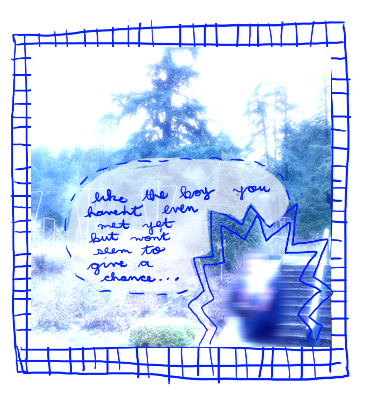 like the boy you
havent even
met yet
but wont
seem to
give a
chance...